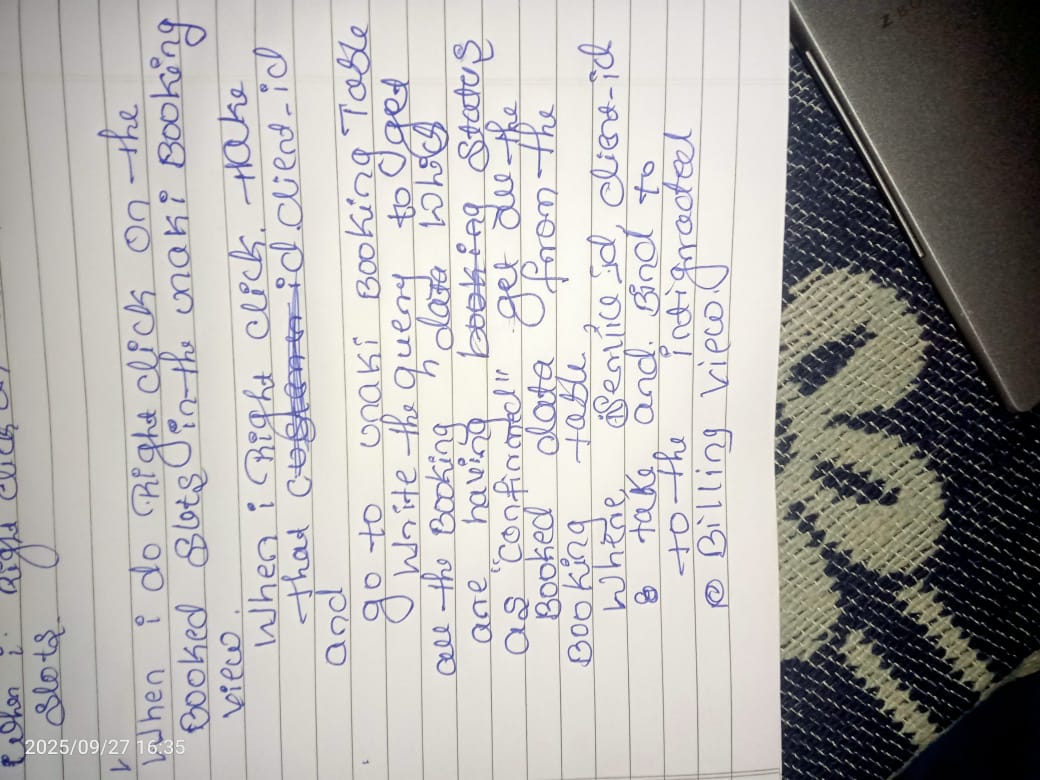 When i. right click on
Slots.
When i do right click on the
Booked Slots in the unaki Booking
view.
When i right click. take
that customer id. client-id
and
go to unaki Booking Table
write the query to get
all the Booking data which
are having booking Status
as "confirmed" get all the
Booked data from the
Booking table
where Service id, client-id
take and. Bind to
to the intigrated
Billing view.
2025/09/27 16:35